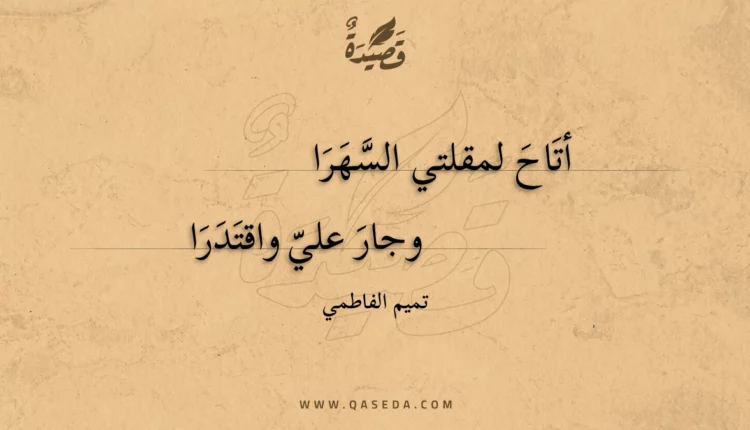 قَصِيدَةٌ
أتَاحَ لمقلتي السَّهَرَا
وجارَ عليّ واقتَدَرَا
تميم الفاطمي
WWW.QASEDA.COM